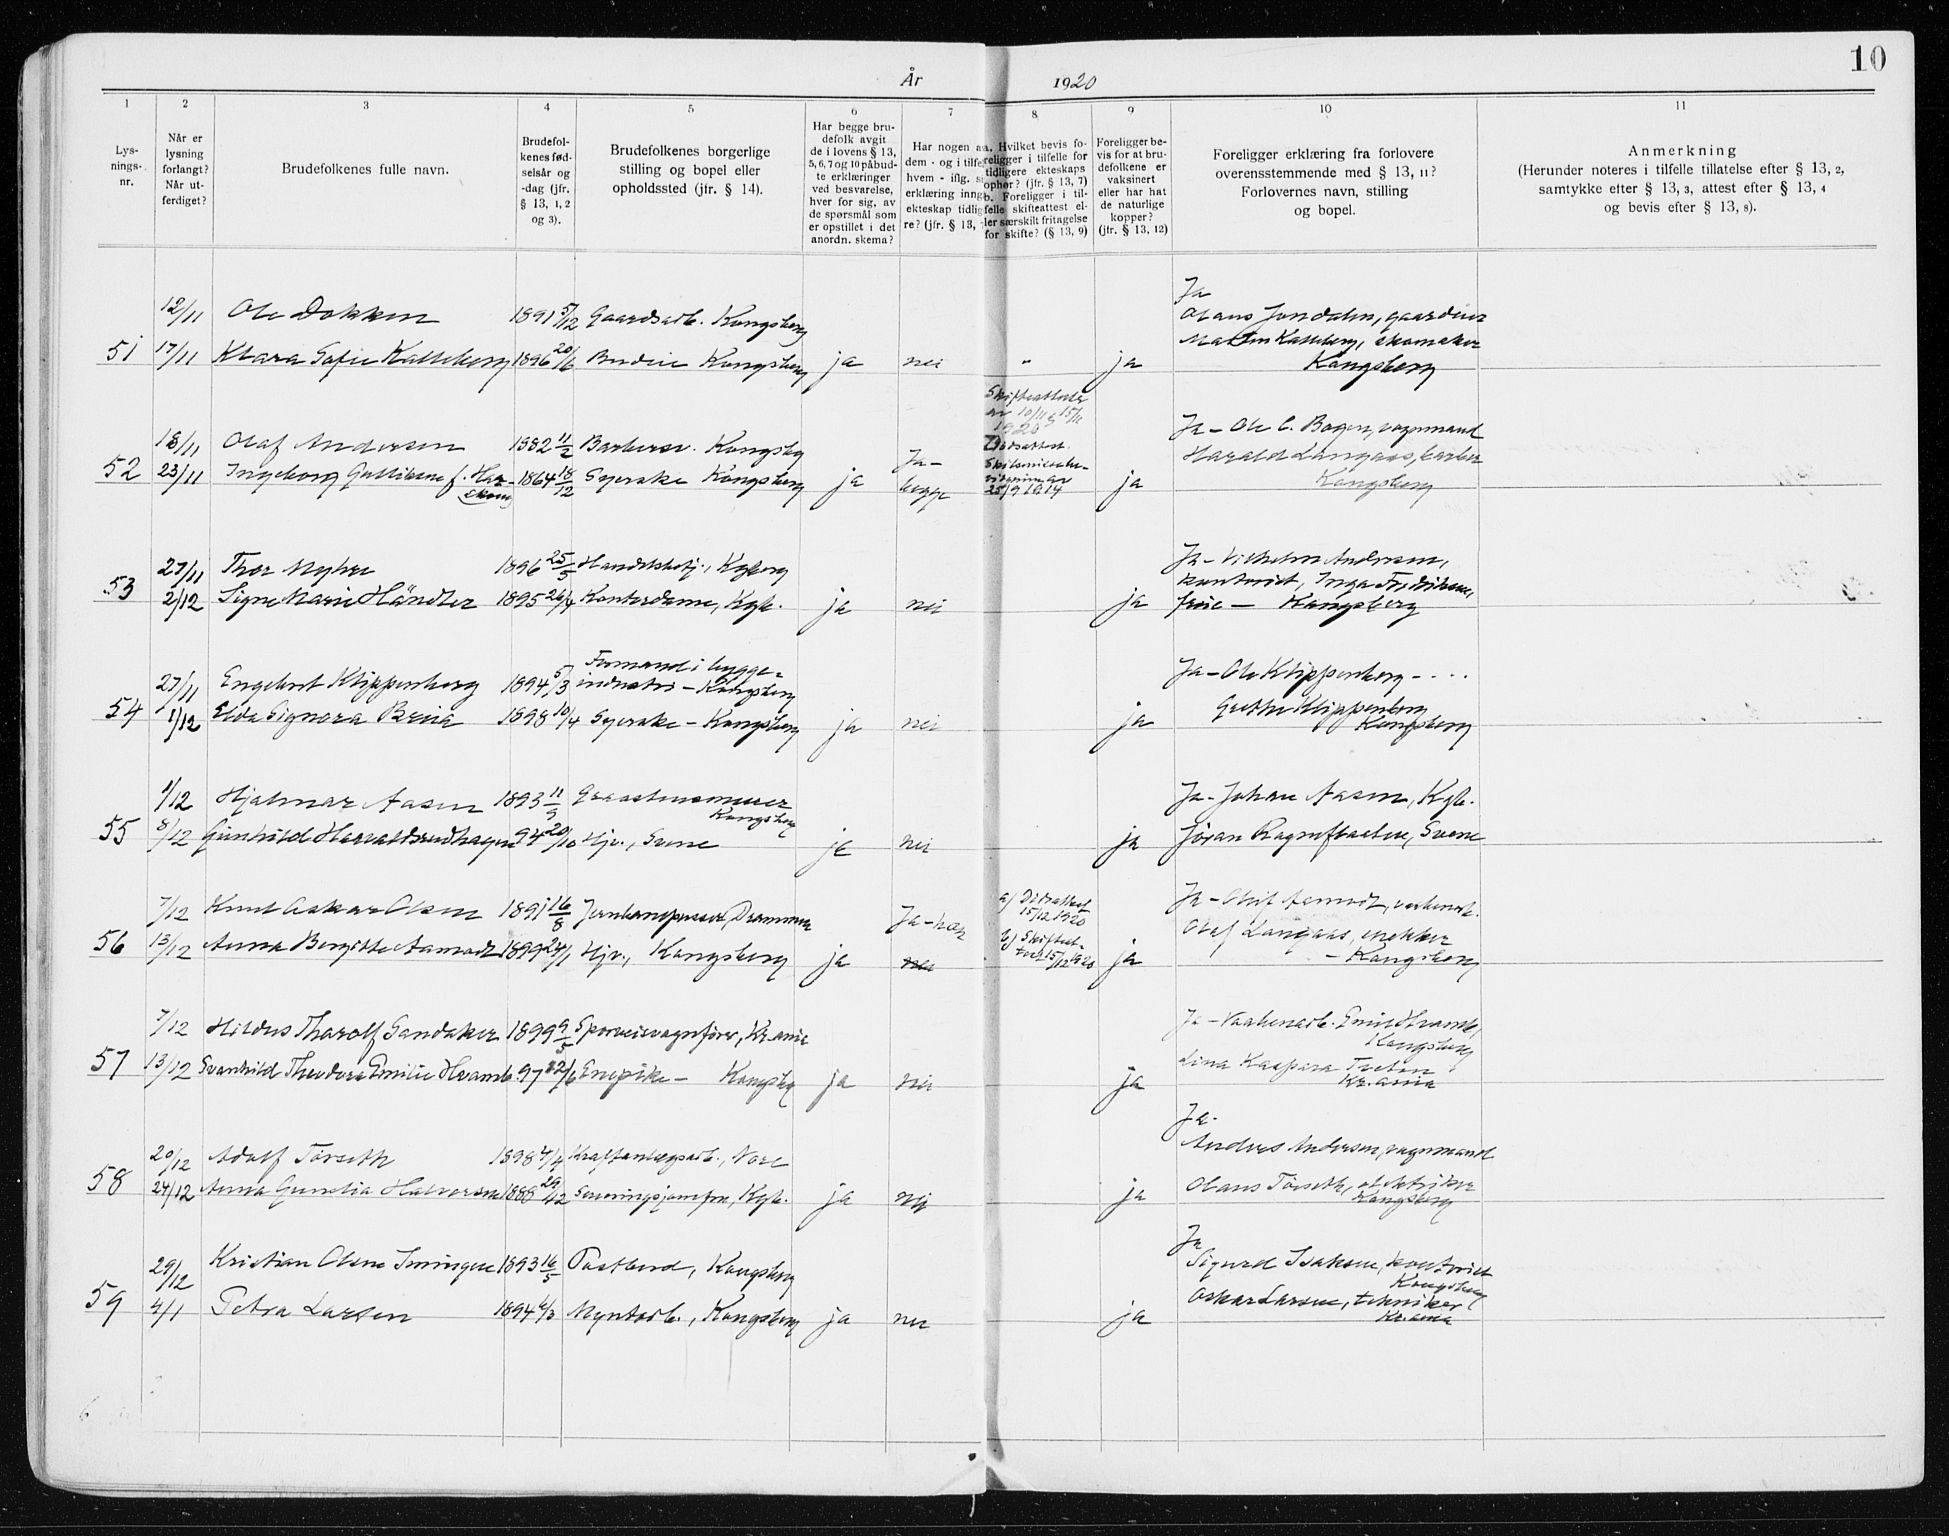 10
År 1920
1 2 3 4 5 6 7 8 9 10 11
Lys-
nings-
nr.
Når er
lysning
forlangt?
Når ut-
ferdiget?
Brudefolkenes fulle navn.
Brudefol-
kenes fød-
selsår og
-dag (jfr.
§ 13, 1, 2
og 3).
Brudefolkenes borgerlige
stilling og bopel eller
opholdssted (jfr. § 14).
Har begge bru-
defolk avgit
de i lovens § 13,
5, 6, 7 og 10 påbud-
te erklæringer
ved besvarelse,
hver for sig, av
de spørsmål som
er opstillet i det
anordn. skema?
Har nogen a
dem - og i tilfe
hvem - iflg. s
erklæring inng
ekteskap tidlig
re? (jfr. § 13,
a. Hvilket bevis fo-
religger i tilfelle for
tidligere ekteskaps
ophør? (jfr. § 13, 7)
b. Foreligger i til-
felle skifteattest el-
ler særskilt fritagelse
for skifte? (§ 13, 9)
Foreligger be-
vis for at bru-
defolkene er
vaksinert
eller har hat
de naturlige
kopper?
(jfr. § 13, 12)
Foreligger erklæring fra forlovere
overensstemmende med § 13, 11?
Forlovernes navn, stilling
og bopel.
Anmerkning
(Herunder noteres i tilfelle tillatelse efter § 13, 2,
samtykke efter § 13, 3, attest efter § 13, 4
og bevis efter § 13, 8).
Ja
12/11 Ole Dokken 1891 5/12 Gaardsarb. Kongsberg Olaus Jondalen, gaardeier
51 17/11 Klara Sofie Kalleberg 1896 20/6 Budeie Kongsberg ja nei " ja Martin Kalleberg, skomaker
Kongsberg
Skifteattester
av 10/11 & 15/11
1920
18/11 Olaf Andersen 1882 11/2 Barbersv. Kongsbg Dødsattest. Ja - Ole C. Bogen, vognmand
52 23/11 Ingeborg Gulliksne f. Har- 1864 18/12 Syerske Kongsberg ja Ja - begge ja Harald Langaas, barber
25/9 1914 Kongsberg
27/11 Thor Myhre 1896 25/5 Handelsbetj., Kgberg Ja - Vilhelm Andersen,
53 2/12 Signe Marie Händler 1895 26/4 Kontordame, Kgb. ja nei ja kontorist, Inga Fredriksen,
frøie - Kongsberg
Formand i bygge-
27/11 Engebret Klippenberg 1894 5/3 industri - Kongsberg Ja - Ole Klippenberg - . . .
54 1/12 Elda Signora Bria 1898 10/4 Syerske - Kongsberg ja nei ja Grethe Klippenberg
Kongsberg
1/12 Hjalmar Aasen 1893 11/9 Graastensmurer Ja - Johan Aasen, Kgb.
Kongsberg
55 8/12 Gunhild Haraldsrudhagen 94 20/10 Hjv., Svene ja nei ja Jøran Ragnaftaalien, Svene
7/12 Knut Oskar Olsen 1891 16/8 Jernbanepusser, Drammen Ja - han a) Dødsattest Ja - Olaf Aamodt, verksarb.
15/12 1920
56 13/12 Anna Bergitte Aamodt 1899 24/1 Hjv., Kongsberg ja nei b) Skifteat- ja Olaf Langaas, snekker
test 15/12 1920 - Kongsberg
7/12 Hildus Tharolf Sandaker 1899 9/5 Sporveisvognfører, Kr.ania Ja - Vaabenarb. Emil Hvamb,
Kongsberg
57 13/12 Svanhild Theodora Emilie Hvamb. 97 22/6 Enepike - Kongsbg ja nei ja Lina Kaspara Tveten
Kr.ania
Ja -
20/12 Adolf Tørseth 1898 4/4 Kraftanlægsarb., Nore Anders Andersen, vognmand
58 24/12 Anna Gunelia Halvorsen 1888 29/12 Serveringsjomfru, Kgb. ja nei ja Olaus Tørseth, elektriker
Kongsberg
Ja
29/12 Kristian Olsen Imingen 1893 16/5 Postbud, Kongsberg Sigurd Isaksen, kontorist
Kongsberg
59 4/1 Petra Larsen 1894 6/3 Myntarb., Kongsberg ja nei ja Oskar Larsen, tekniker
Kr.ania